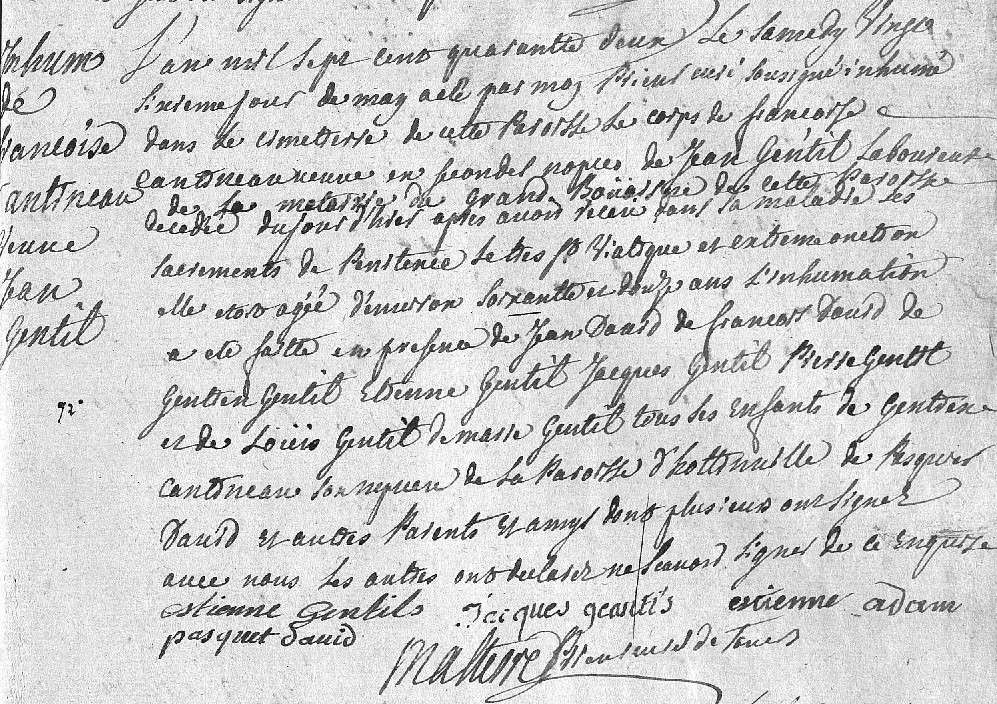 Inhum
de
francoise
Cantineau
veuve
Jean
Gentil
72.
L'an mil sept cent quarante deux Le Samedy Vingt
Sixieme jour de may a eté par moy Prieur curé Sousigné inhumé
dans Le cimettierre de cette Paroisse Le corps de francoise
cantineau veuve en secondes nopces de Jean Gentil Laboureur
de La metairie du grand de cette Paroisse
decedée du jour d'hier apres avoir receu dans sa maladie Les
sacrements de Penitence Le tres St Viatique et extreme onction
elle etoit agée d'environ soixante et douze ans L'inhumation
a eté faitte en presence de Jean David de francois David de
Gentien Gentil Etienne Gentil Jacques Gentil Pierre Gentil
et de Loüis Gentil de marie Gentil tous ses Enfants de Gentien
cantineau son nepveu de La Paroisse d'hottonville de Pasquier
David et autres Parents et amys dont plusieurs ont signez
avec nous Les autres ont declarez ne scavoir signer de ce Enquise
estienne Gentils Jacques gentis etienne adam
pasquet david
Malterre Prieur curé de